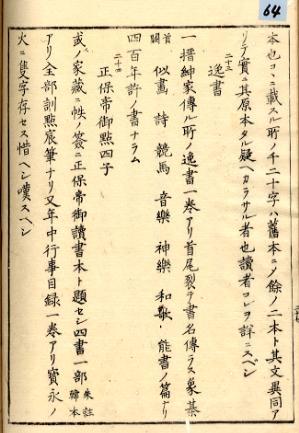 64
本也コヽニ載スル所ノ千二十字ハ舊本ニノ餘ノ二本ト其文異同ア
リテ實ニ其原本タル疑ヘカラサル者也讀者コレヲ詳ニスベシ
二十三
逸書
一搢紳家傳ル所ノ逸書一巻アリ首尾裂テ書名傳ラス象棊
首闕
似畫 詩 競馬 音樂 神樂 和歌 能書ノ篇アリ
四百年許ノ書ナラム
二十四
正保帝御點四子
或ノ家藏ニ帙ノ簽ニ正保帝御讀書本ト題セシ四書一部
朱註
韓本
アリ全部訓點宸筆ナリ又年中行事目録一巻アリ寶永ノ
火ニ隻字存セス惜ヘシ嘆スヘシ